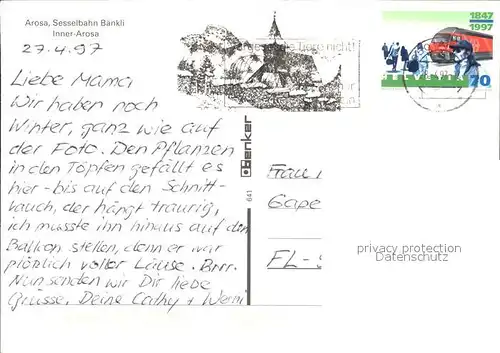 Arosa, Sesselbahn Bänkli
Inner-Arosa
27.4.97
Liebe Mama,
Wir haben noch
Winter, ganz wie auf
der Foto. Den Pflanzen
in den Töpfen gefällt es
hier - bis auf den Schnitt-
lauch, der hängt traurig,
ich musste ihn hinaus auf den
Balkon stellen, denn er war
plötzlich voller Läuse. Brrr.
Nun senden wir Dir liebe
Grüsse, Deine Cathy + Werni
641
Benker
1847
1997
HELVETIA
70
Frau
Gape
FL-
privacy protection
Datenschutz